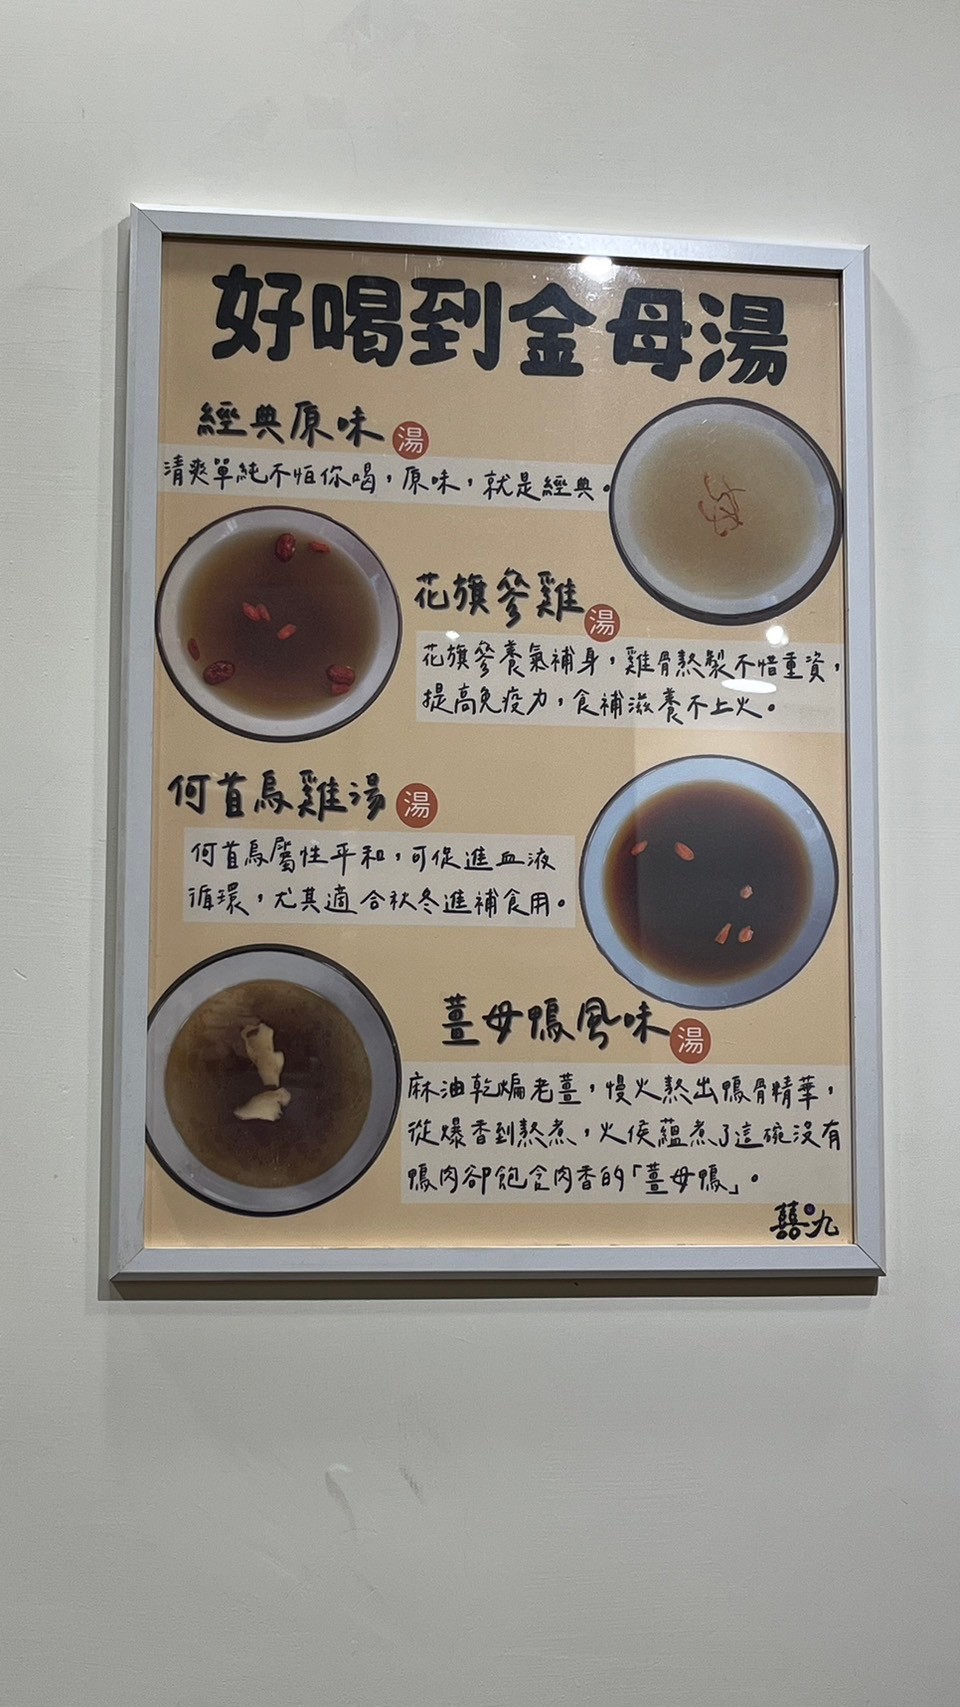 好喝到金母湯
經典原味 湯
清爽單純不怕你喝，原味，就是經典。
花旗蔘雞 湯
花旗蔘養氣補身，雞骨熬製不惜重資，
提高免疫力，食補滋養不上火。
何首烏雞湯 湯
何首烏屬性平和，可促進血液
循環，尤其適合秋冬進補食用。
薑母鴨風味 湯
麻油乾煸老薑，慢火熬出鴨骨精華，
從爆香到熬煮，火侯蘊煮了這碗沒有
鴨肉卻飽含肉香的「薑母鴨」。
囍九